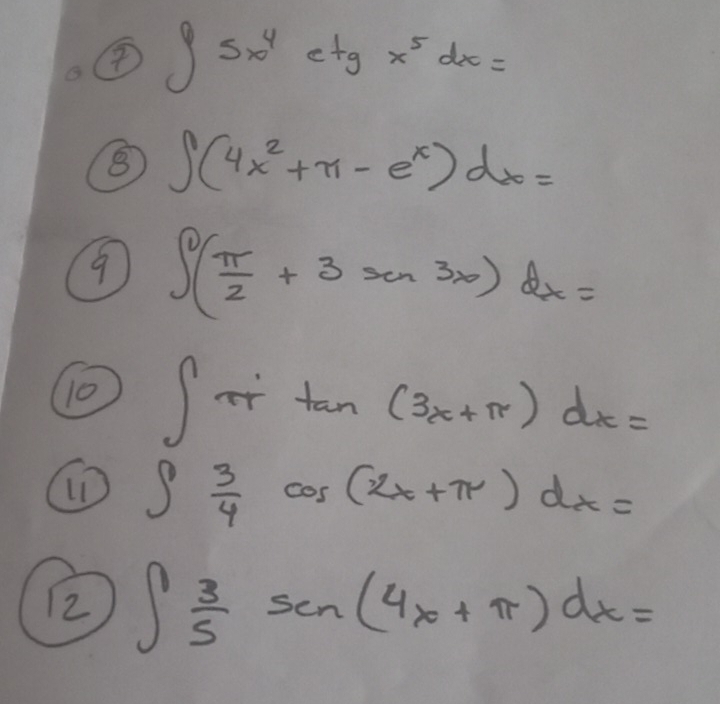 ⑦ ∫ 5x⁴ ctg x⁵ dx =
⑧ ∫(4x² + π - eˣ) dx =
⑨ ∫(π/2 + 3 sen 3x) dx =
⑩ ∫ π tan (3x + π) dx =
⑪ ∫ 3/4 cos (2x + π) dx =
⑫ ∫ 3/5 sen (4x + π) dx =